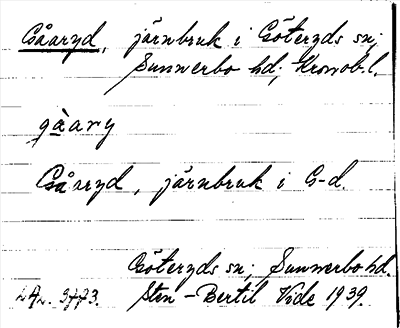 Gåaryd, järnbruk i Göteryds sn;
Sunnerbo hd; Kronob. l.
gåary
Gåaryd, järnbruk i G-d.
Göteryds sn; Sunnerbo hd.
Sten-Bertil Vide 1939.